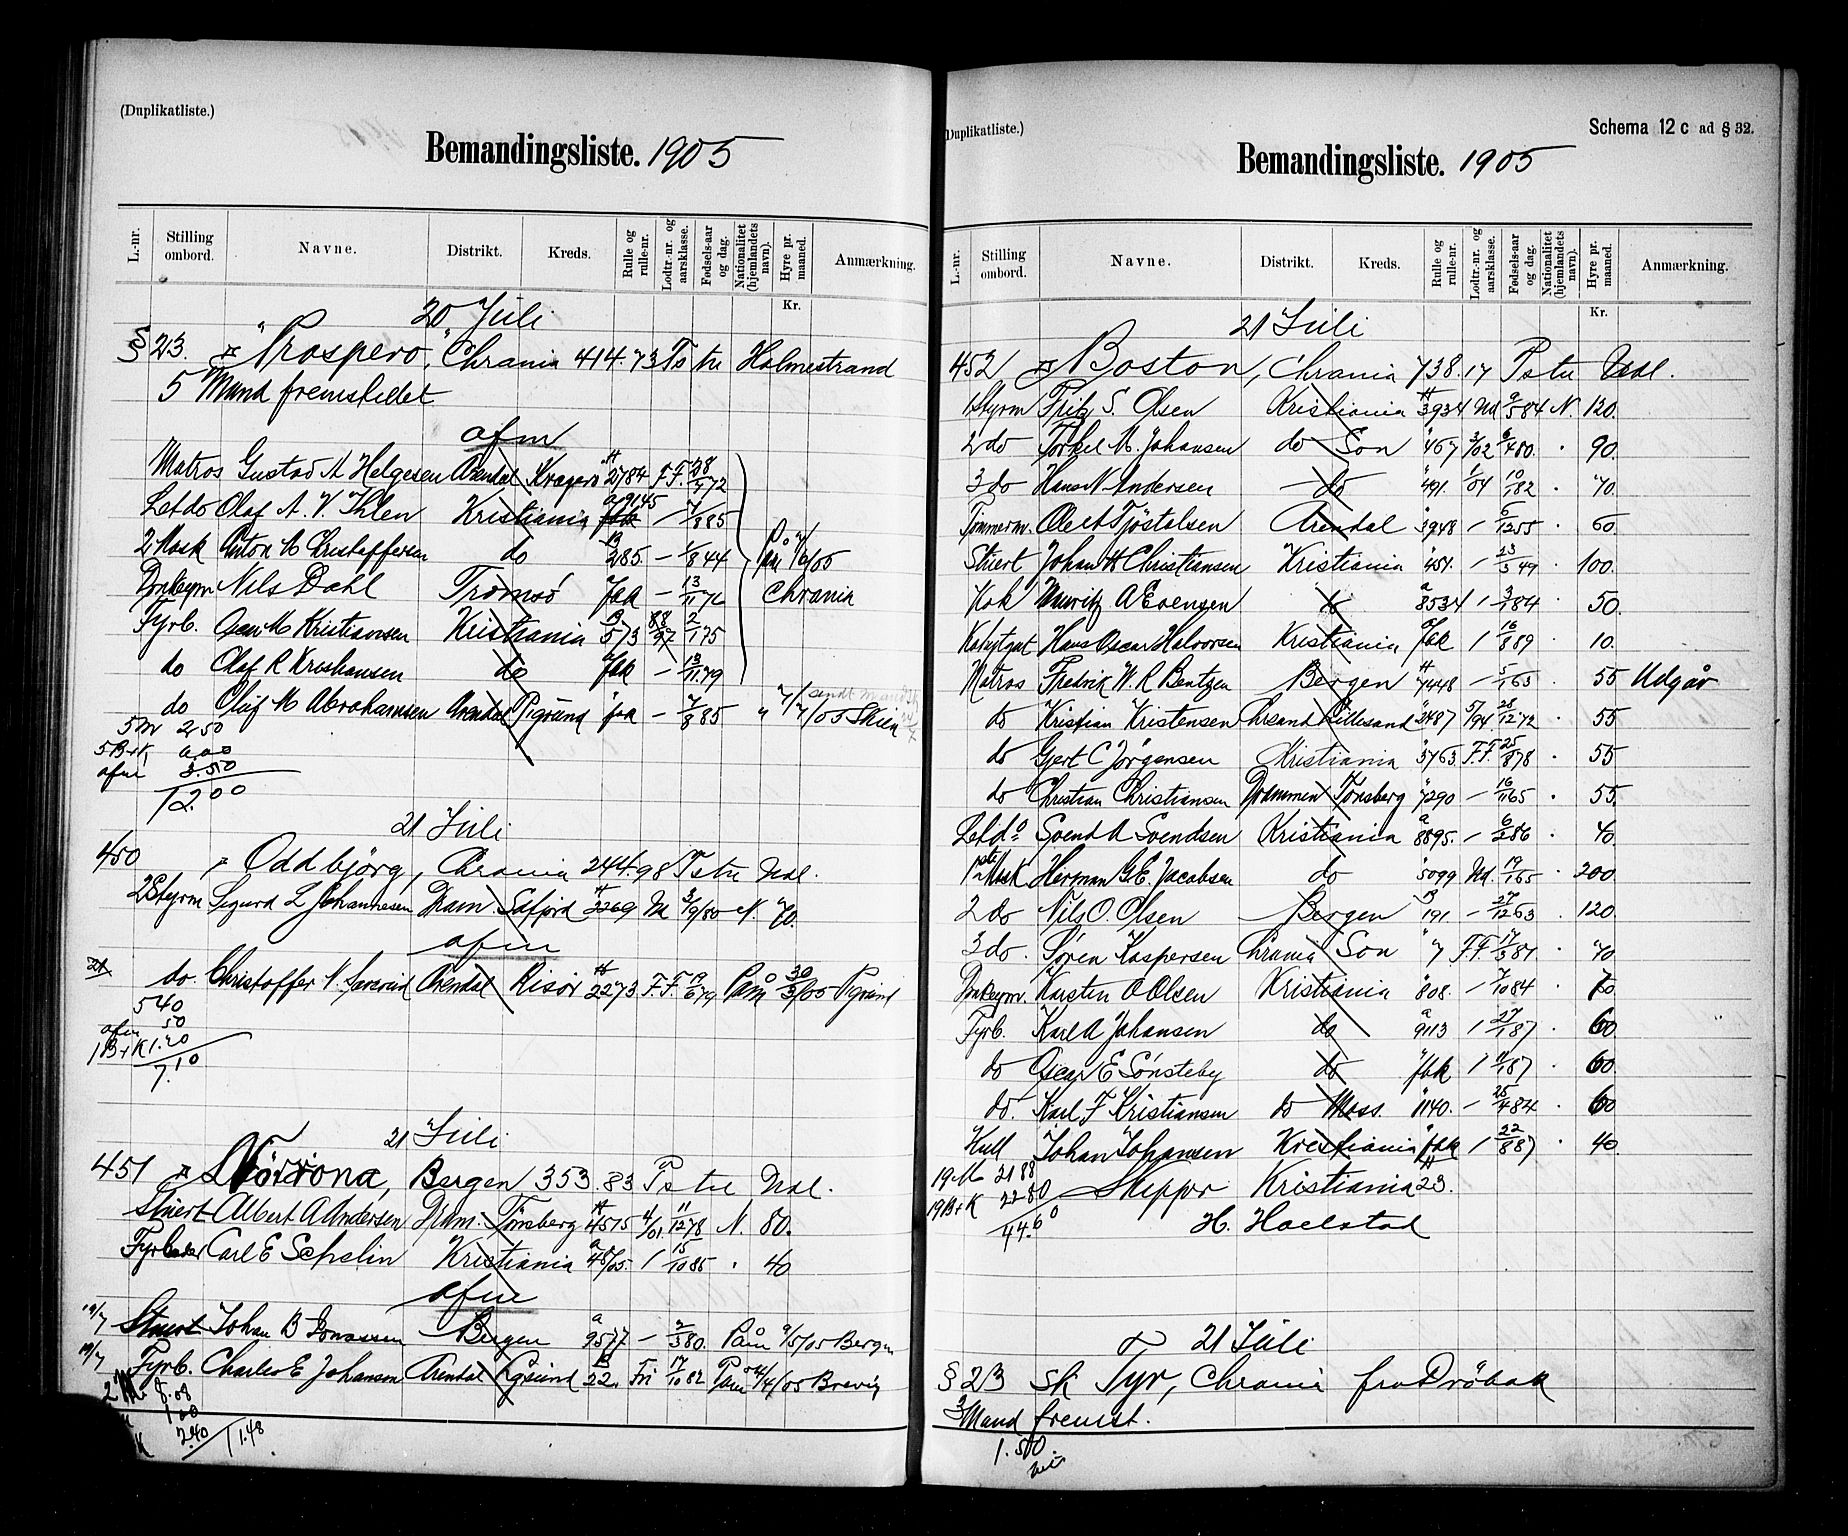 (Duplikatliste.)
Bemandingsliste. 1905
L.-nr.
Stilling ombord.
Navne.
Distrikt.
Kreds.
Rulle og rulle-nr.
Lodtr.-nr. og aarsklasse.
Fødsels-aar og dag.
Nationalitet (hjemlandets navn).
Hyre pr. maaned.
Anmærkning.
Kr.
20 Juli
§ 23. "Prospero", Chrania 414.73 Ts tr Holmestrand
5 Mand fremstillet
afm
Matros Gustav A Helgesen Arendal Kragerø 2784 F.F. 28/ 72
Letdo Olaf A. V. Ihlen Kristiania 9145 — 7/885
2 Mask Anton M Christoffersen do 285. — 1/844
Donkeym Nils Dahl Tromsø fak — 13/11 76 Chrania
Fyrb. Oscar M Kristiansen Kristiania 573 88/97 2/175
do Olaf R Kristiansen do fak — 13/1179
do Olaf M Abrahamsen Arendal Pgrund fra — 7/885 " 7/7/05 Skien
5 M 2.50
5 B+K 6.00
afm 3.50
12.00
21 Juli
450 Oddbjörg, Chrania 244.98 Ts tr Udl.
2 Styrm Sigurd L Johannesen Dram. Sdfjord 2269 Md 3/9/80 N. 70.
afm
21 do. Christoffer N. Arendal Risør 2273 F.F. 19/679 Påm 30/3/05 Pgrund
5 40
afm 50
1 B+K 1.20
7.10
21 Juli
451 Norröna, Bergen 353.83 Ts tr Udl.
Stuert Albert A Andersen Dram. Tønsberg 4575 4/01 11/1278 N. 80.
Fyrbøder Carl E Schelin Kristiania 48/05. 1 15/1085 · 40
afm
19/7 Stuert Johan B Jonassen Bergen 9577 — 2/380. Påm 9/5/05 Bergen
19/7 Fyrb. Charles E Johansen Arendal Pgrund 22. Fri 17/1082 Påm /4/05 Brevig
2 M. 8.08
1 00
2.40
11.48
(Duplikatliste.)
Schema 12 c ad § 32.
Bemandingsliste. 1905
L.-nr.
Stilling ombord.
Navne.
Distrikt.
Kreds.
Rulle og rulle-nr.
Lodtr.-nr. og aarsklasse.
Fødsels-aar og dag.
Nationalitet (hjemlandets navn).
Hyre pr. maaned.
Anmærkning.
Kr.
21 Juli
452 Boston, Chrania 738.17 Ts tr Udl.
1 Styrm Fritz S. Olsen Kristiania 3934 Md 9/584 N. 120.
2 do Torkel M. Johansen do Son 467 3/02 6/480. · 90.
3 do Hans N Andersen — do 491. 1/04 10/182 · 70.
Tømmerm. Ole A Tjöstolsen Arendal 3948 — 6/1255 · 60
Stuert Johan H Christiansen Kristiania 451. 1 23/549 · 100.
Kok Mauritz A Evensen do 8534 1 3/184 · 50.
Kahytgut Hans Oscar Halvorsen Kristiania fak 1 16/889 · 10.
Matros Fredrik W. R. Bentzen Bergen 7448 — 5/165 · 55 Udgår
do Kristian Kristensen Chrsand Lillesand 2487 5/94 25/1272 · 55
do Gjert C Jörgensen Kristiania 3763 F.F. 25/878 · 55
do Christian Christiansen Drammen Tønsberg 7290 — 16/1165 · 55.
Letdo Svend A Svendsen Kristiania 8895. — 6/286 · 40.
1ste Mask Herman G.E. Jacobsen do 5099 Md. 19/165 · 200.
2 do Nils O. Olsen Bergen 191. — 27/1263 · 120.
3 do. Søren Kaspersen Chrania Son " 7 F.F. 17/381 · 70
Donkeym. Karsten O Olsen Kristiania 808. — 7/1084 · 70.
Fyrb. Karl A Johansen do 9113 1 27/187 · 60
do Oscar E Sønsteby do fak 1 11/187 · 60
do. Karl F Kristiansen do Moss. 1140. — 25/484 · 60
Kull Johan Johansen Kristiania fak 1 22/887 · 40.
19 M 21 88
19 B+K 22 80
44.60
Skipper Kristiania 23.
H. Hoelstad
21 Juli
§ 23 sk Tyr, Chrania fra Drøbak
3 Mand fremst.
1.50.